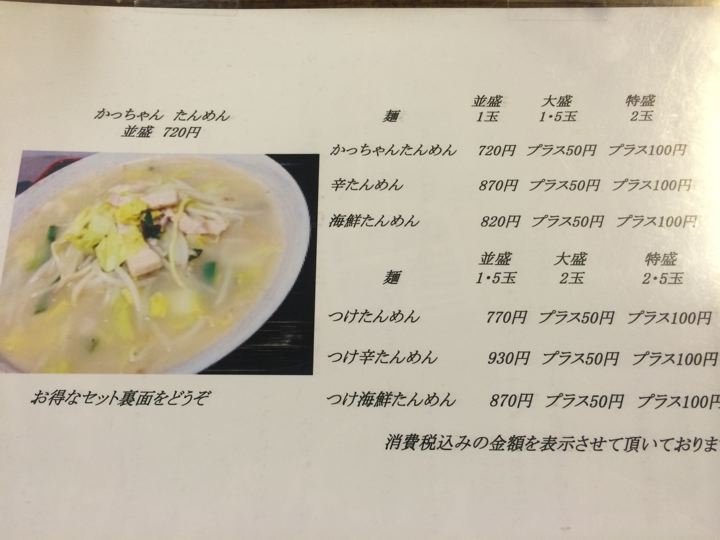 かっちゃん たんめん
並盛 720円
お得なセット裏面をどうぞ
麺 並盛 大盛 特盛
1玉 1・5玉 2玉
かっちゃんたんめん 720円 プラス50円 プラス100円
辛たんめん 870円 プラス50円 プラス100円
海鮮たんめん 820円 プラス50円 プラス100円
麺 並盛 大盛 特盛
1・5玉 2玉 2・5玉
つけたんめん 770円 プラス50円 プラス100円
つけ辛たんめん 930円 プラス50円 プラス100円
つけ海鮮たんめん 870円 プラス50円 プラス100円
消費税込みの金額を表示させて頂いておりま